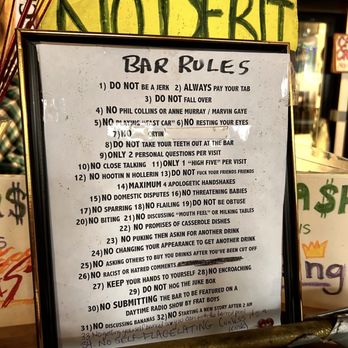 NO DEBIT
BAR RULES
1) DO NOT BE A JERK 2) ALWAYS PAY YOUR TAB
3) DO NOT FALL OVER
4) NO PHIL COLLINS OR ANNE MURRAY / MARVIN GAYE
5) NO PLAYING "FAST CAR" 6) NO RESTING YOUR EYES
7) NO CRYIN
8) DO NOT TAKE YOUR TEETH OUT AT THE BAR
9) ONLY 2 PERSONAL QUESTIONS PER VISIT
10) NO CLOSE TALKING 11) ONLY 1 "HIGH FIVE" PER VISIT
12) NO HOOTIN N HOLLERIN 13) DO NOT FUCK YOUR FRIENDS FRIENDS
14) MAXIMUM 4 APOLOGETIC HANDSHAKES
15) NO DOMESTIC DISPUTES 16) NO THREATENING BABIES
17) NO SPARRING 18) NO FLAILING 19) DO NOT BE OBTUSE
20) NO BITING 21) NO DISCUSSING "MOUTH FEEL" OR MILKING TABLES
22) NO PROMISES OF CASSEROLE DISHES
23) NO PUKING THEN ASKIN FOR ANOTHER DRINK
24) NO CHANGING YOUR APPEARANCE TO GET ANOTHER DRINK
25) NO ASKING OTHERS TO BUY YOU DRINKS AFTER YOU'VE BEEN CUT OFF
26) NO RACIST OR HATRED COMMENTS
27) KEEP YOUR HANDS TO YOURSELF 28) NO ENCROACHING
29) DO NOT HOG THE JUKE BOX
30) NO SUBMITTING THE BAR TO BE FEATURED ON A
DAYTIME RADIO SHOW BY FRAT BOYS
31) NO DISCUSSING BANANAS 32) NO STARTING A NEW STORY AFTER 2 AM
NO SELF FLAGELATING